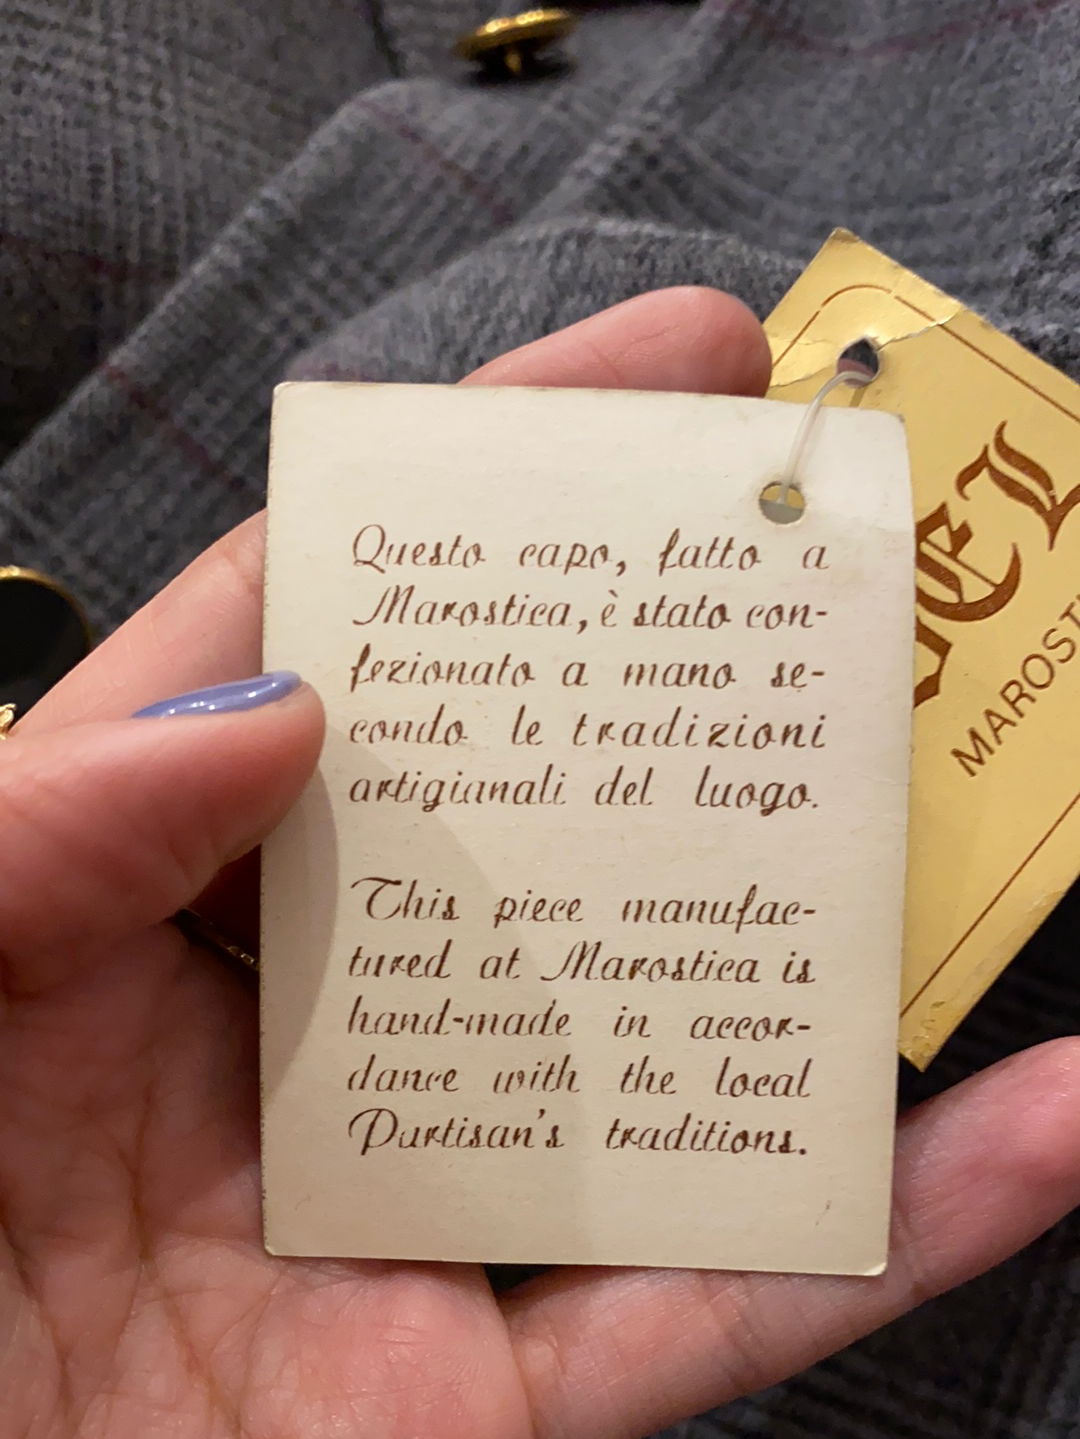 Questo capo, fatto a
Marostica, è stato con-
fezionato a mano se-
condo le tradizioni
artigianali del luogo.
This piece manufac-
tured at Marostica is
hand-made in accor-
dance with the local
Partisan's traditions.